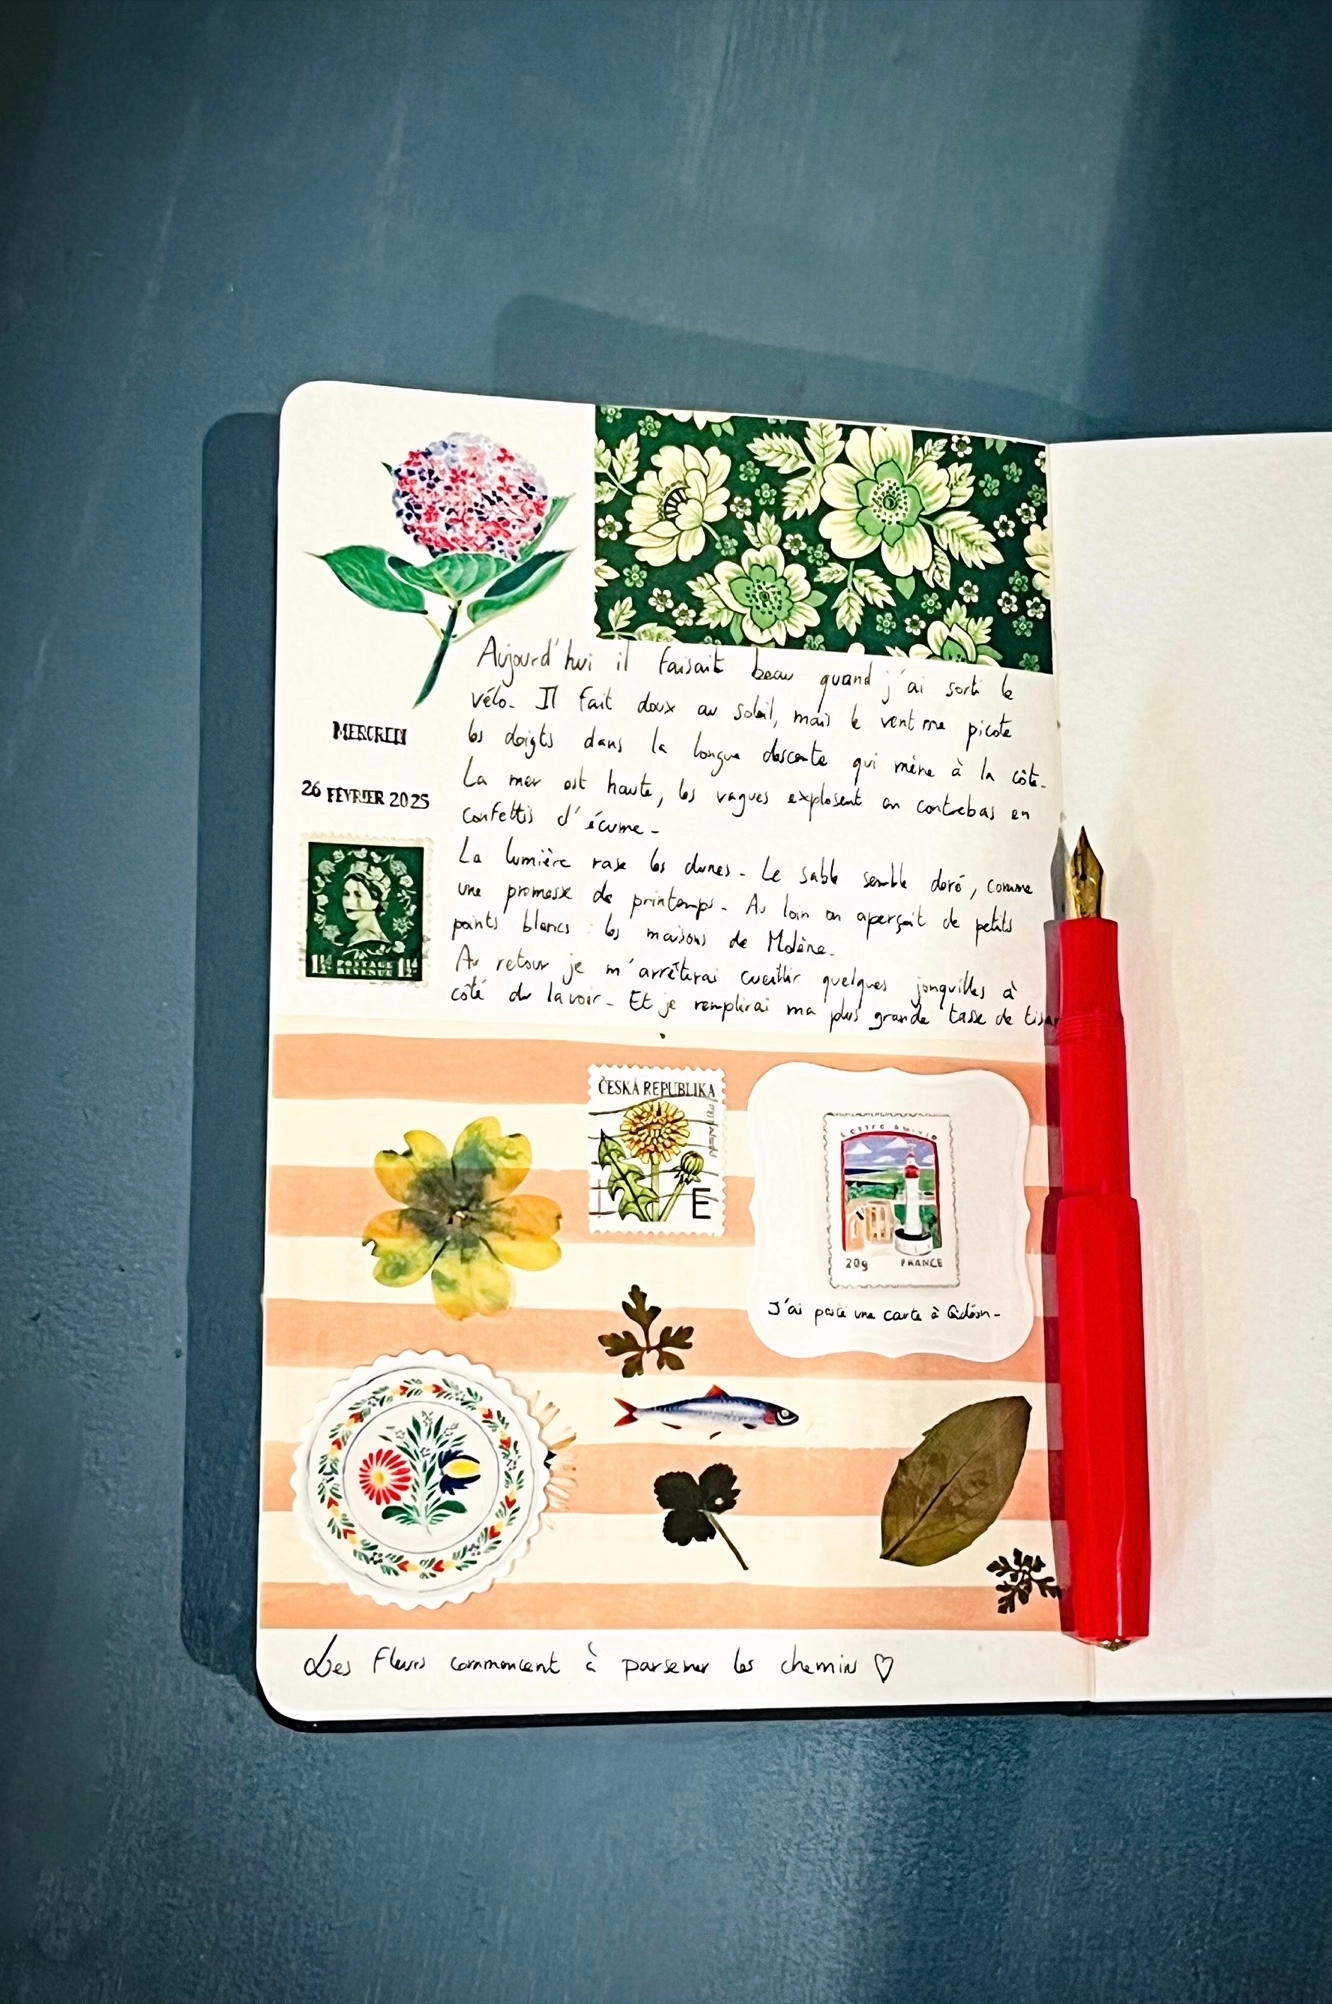 Aujourd'hui il faisait beau quand j'ai sorti le
vélo. Il fait doux au soleil, mais le vent me picote
les doigts dans la longue descente qui mène à la côte.
La mer est haute, les vagues explosent en contrebas en
confettis d'écume.
La lumière rase les dunes. Le sable semble doré, comme
une promesse de printemps. Au loin on aperçoit de petits
points blancs : les maisons de Molène.
Au retour je m'arrêterai cueillir quelques jonquilles à
côté du lavoir. Et je remplirai ma plus grande tasse de
MERCREDI
26 FÉVRIER 2025
1½d POSTAGE REVENUE 1½d
ČESKÁ REPUBLIKA
E
LETTRE
20g FRANCE
J'ai posté une carte à
Les fleurs commencent à parsemer les chemins ♡